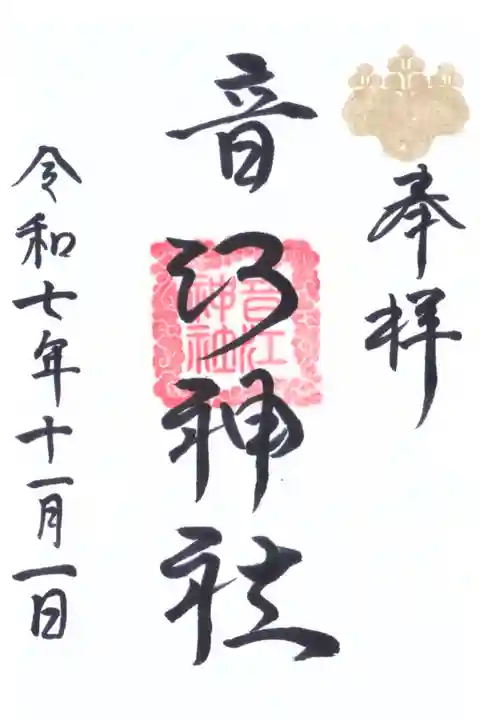 奉拝
音江神社
音江
神社
令和七年十一月一日